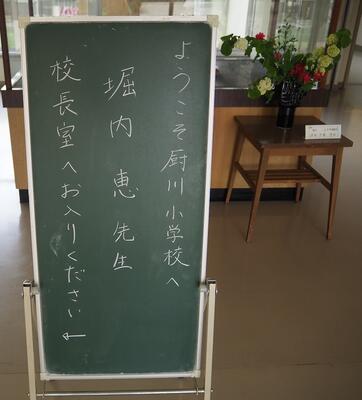 ようこそ厨川小学校へ
堀内恵先生
校長室へお入りください←